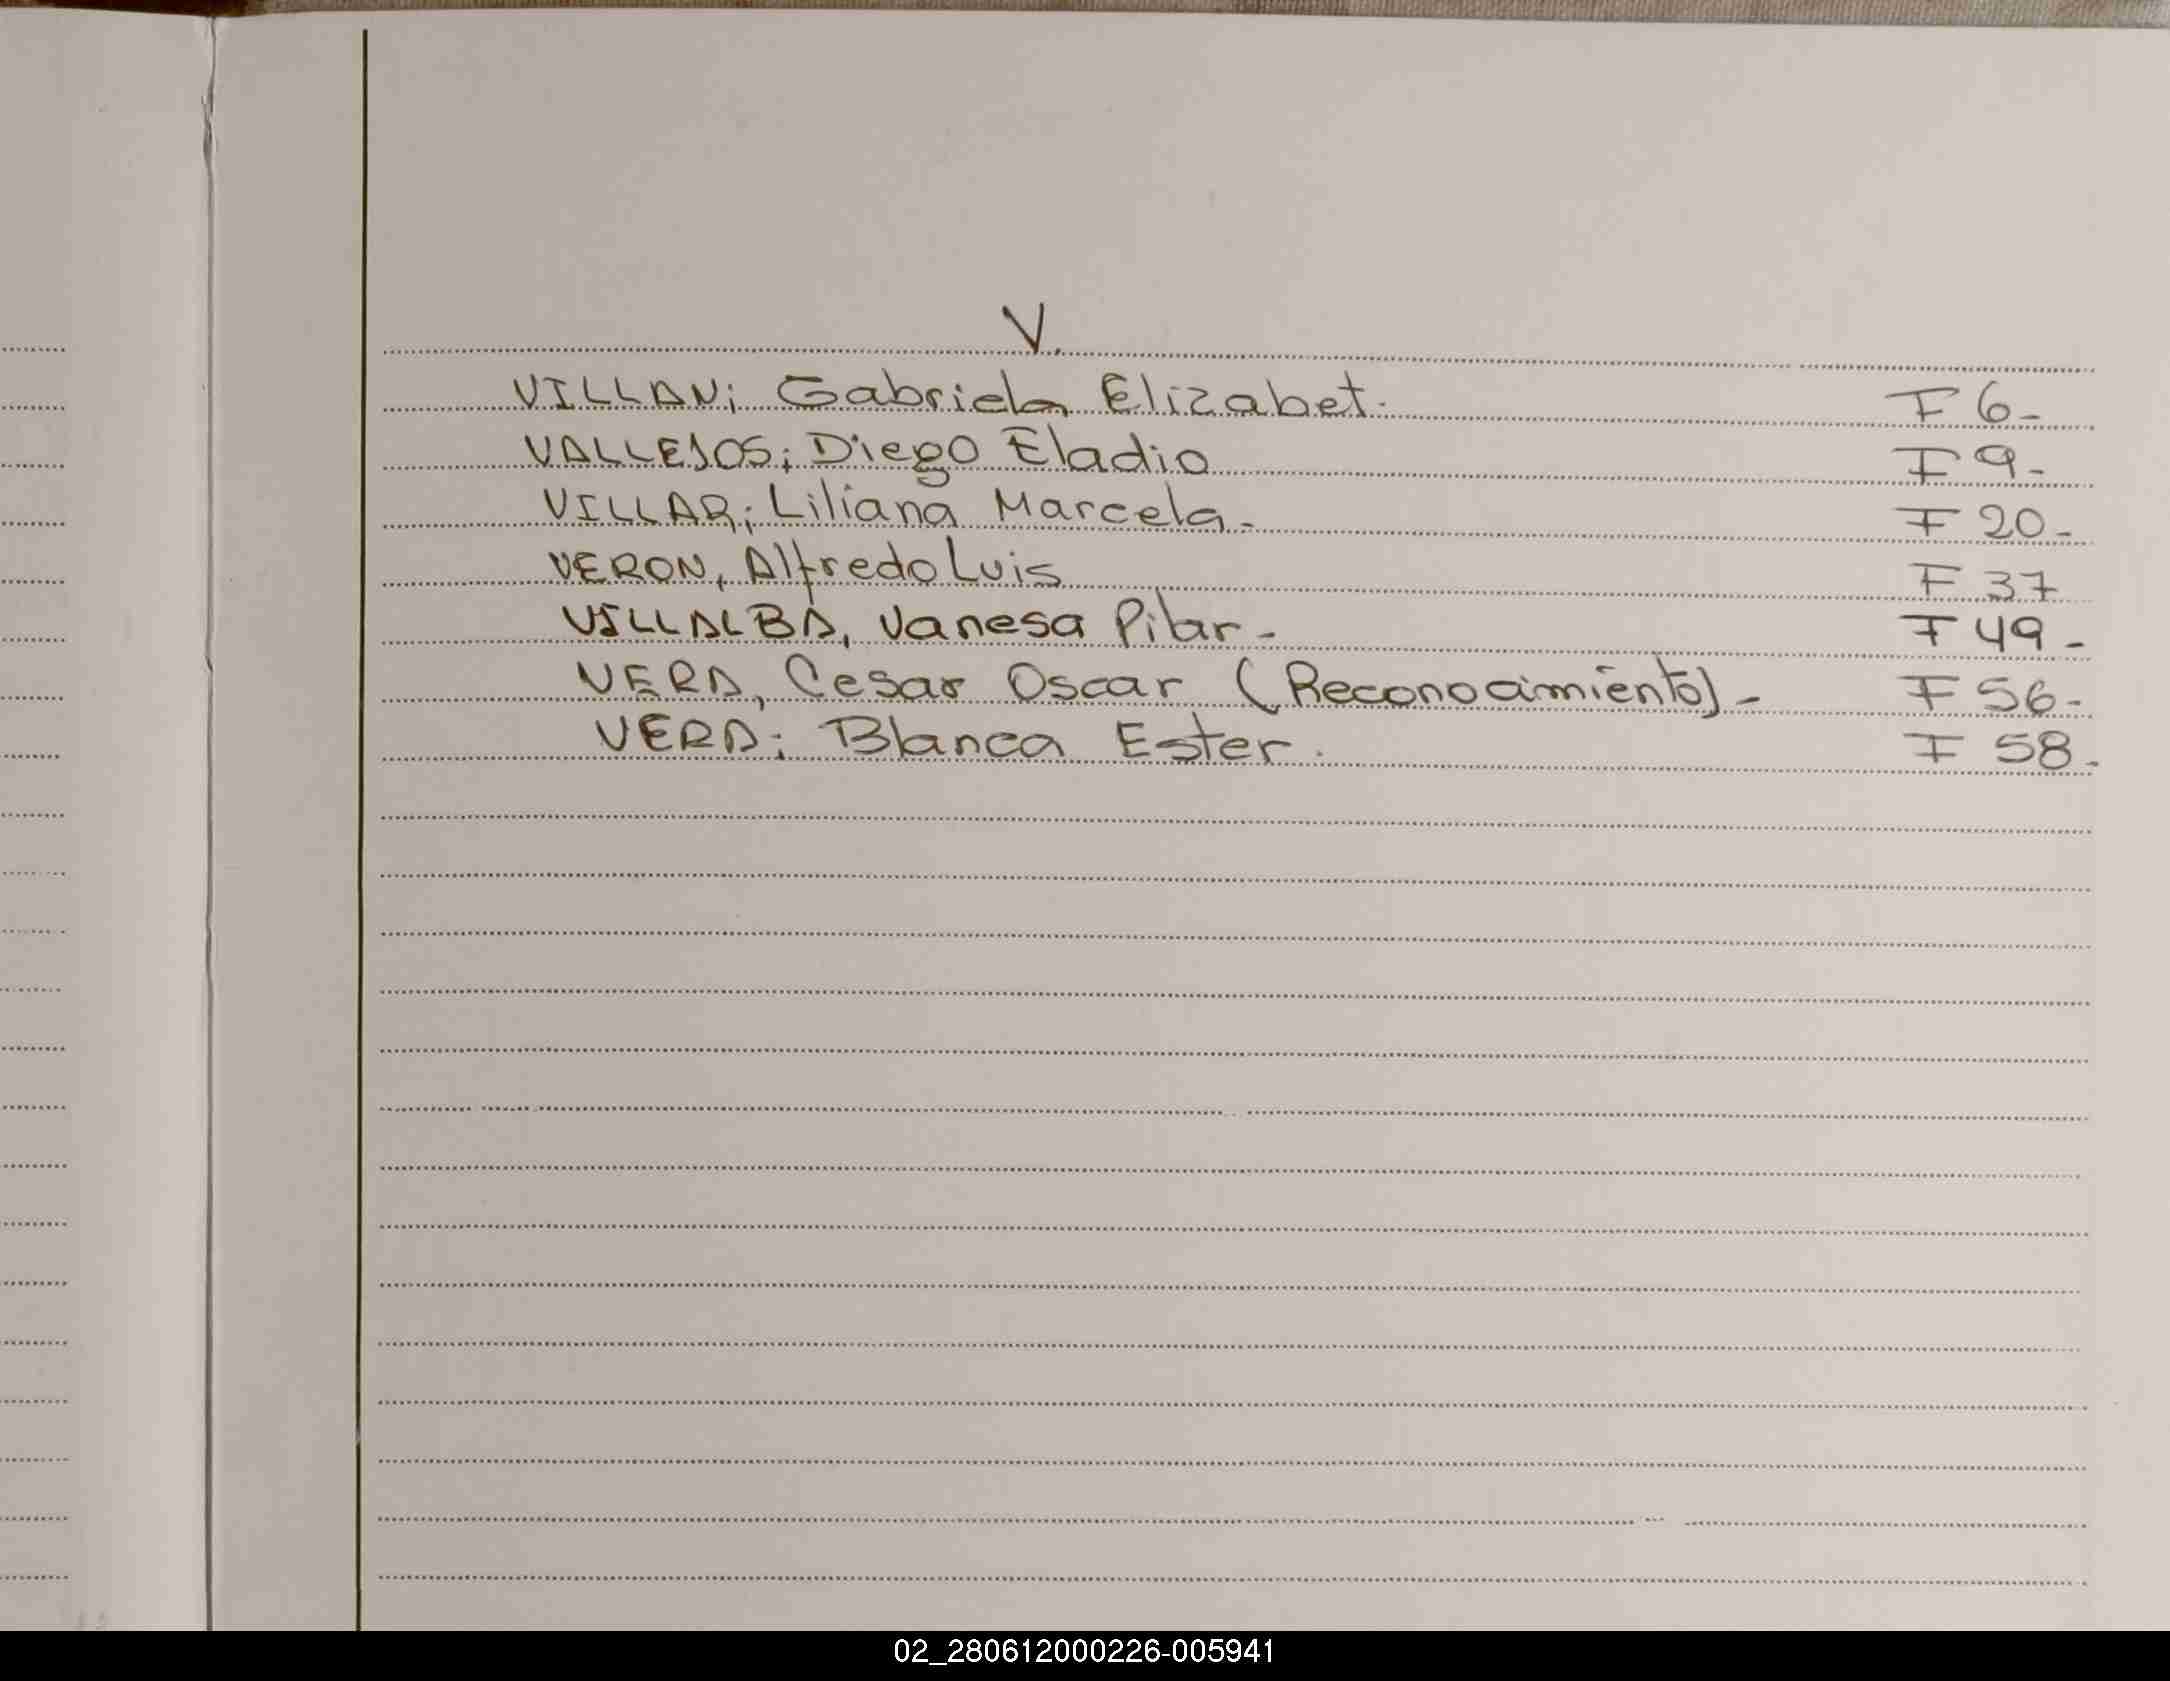 V.
VILLAN; Gabriela Elizabet. F 6-
VALLEJOS; Diego Eladio F 9-
VILLAR; Liliana Marcela- F 20-
VERON, Alfredo Luis F 37
VILLALBA, Vanesa Pilar- F 49-
VERA, Cesar Oscar (Reconocimiento)- F 56-
VERA; Blanca Ester. F 58.
02_280612000226-005941